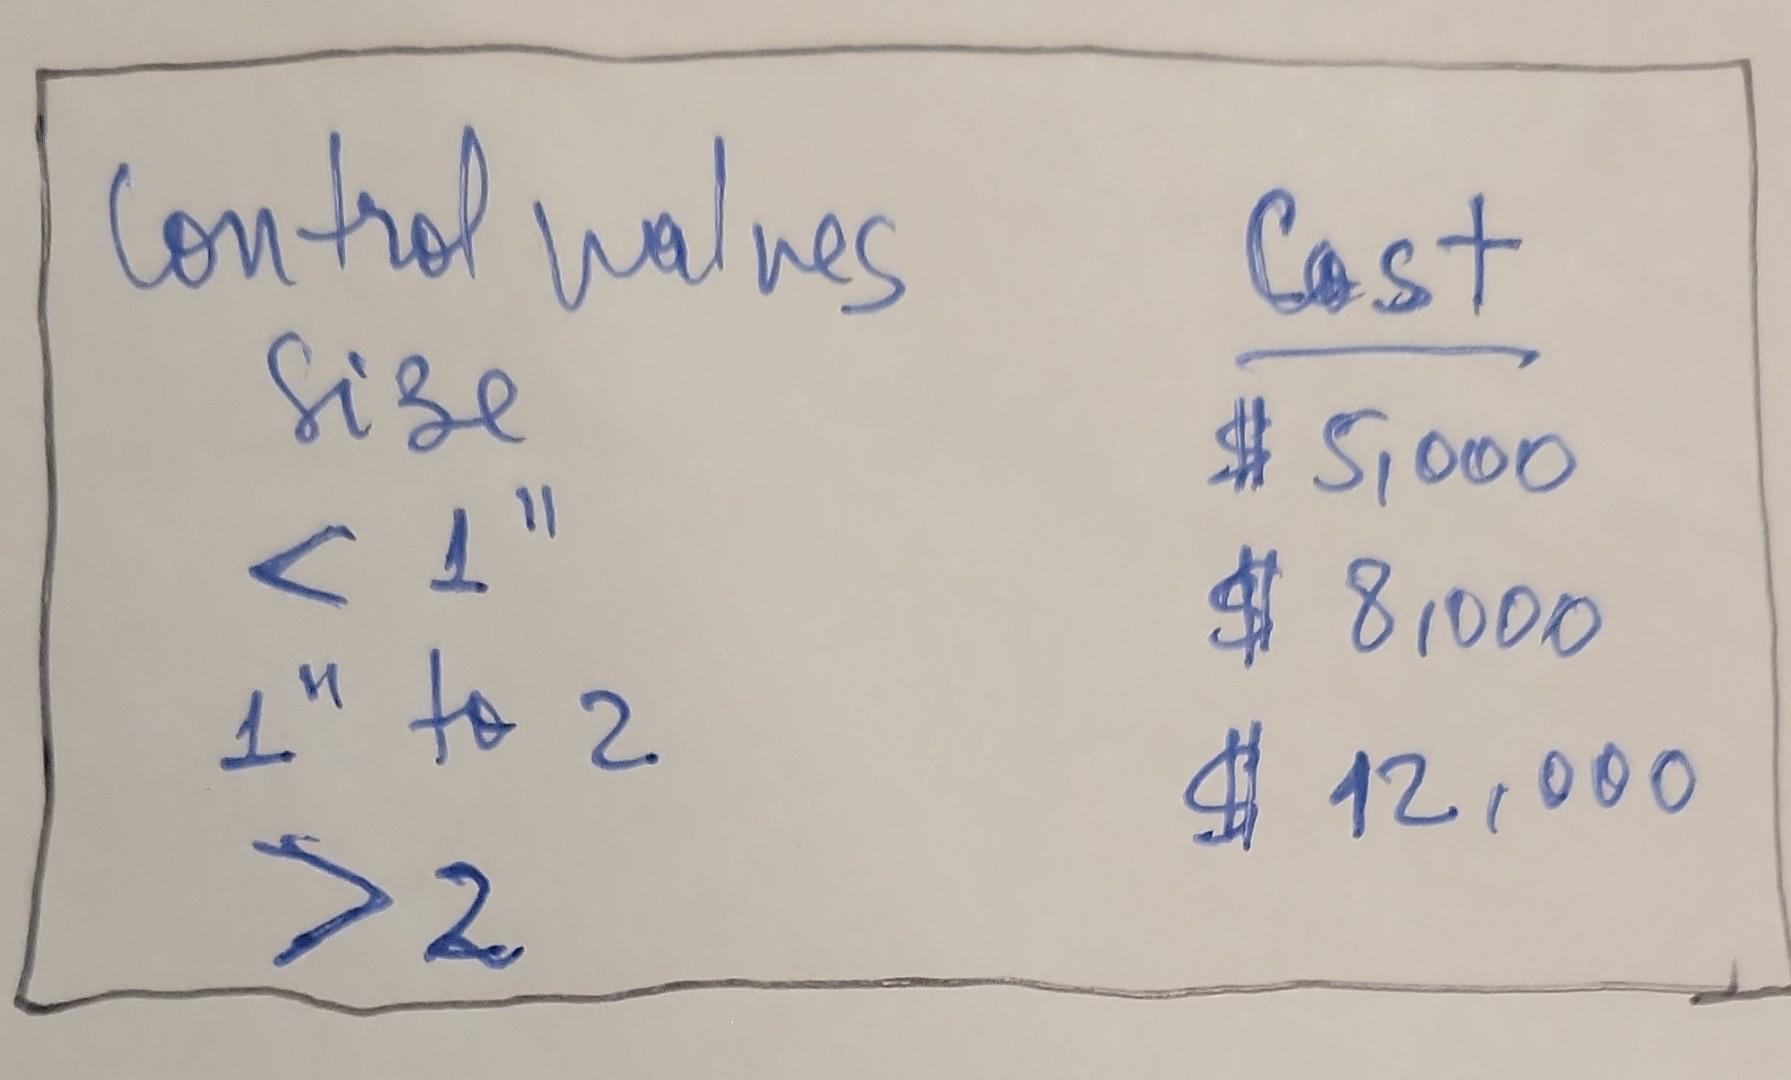 Control valves
Cost
Size
$ 5,000
< 1"
$ 8,000
1" to 2
$ 12,000
> 2